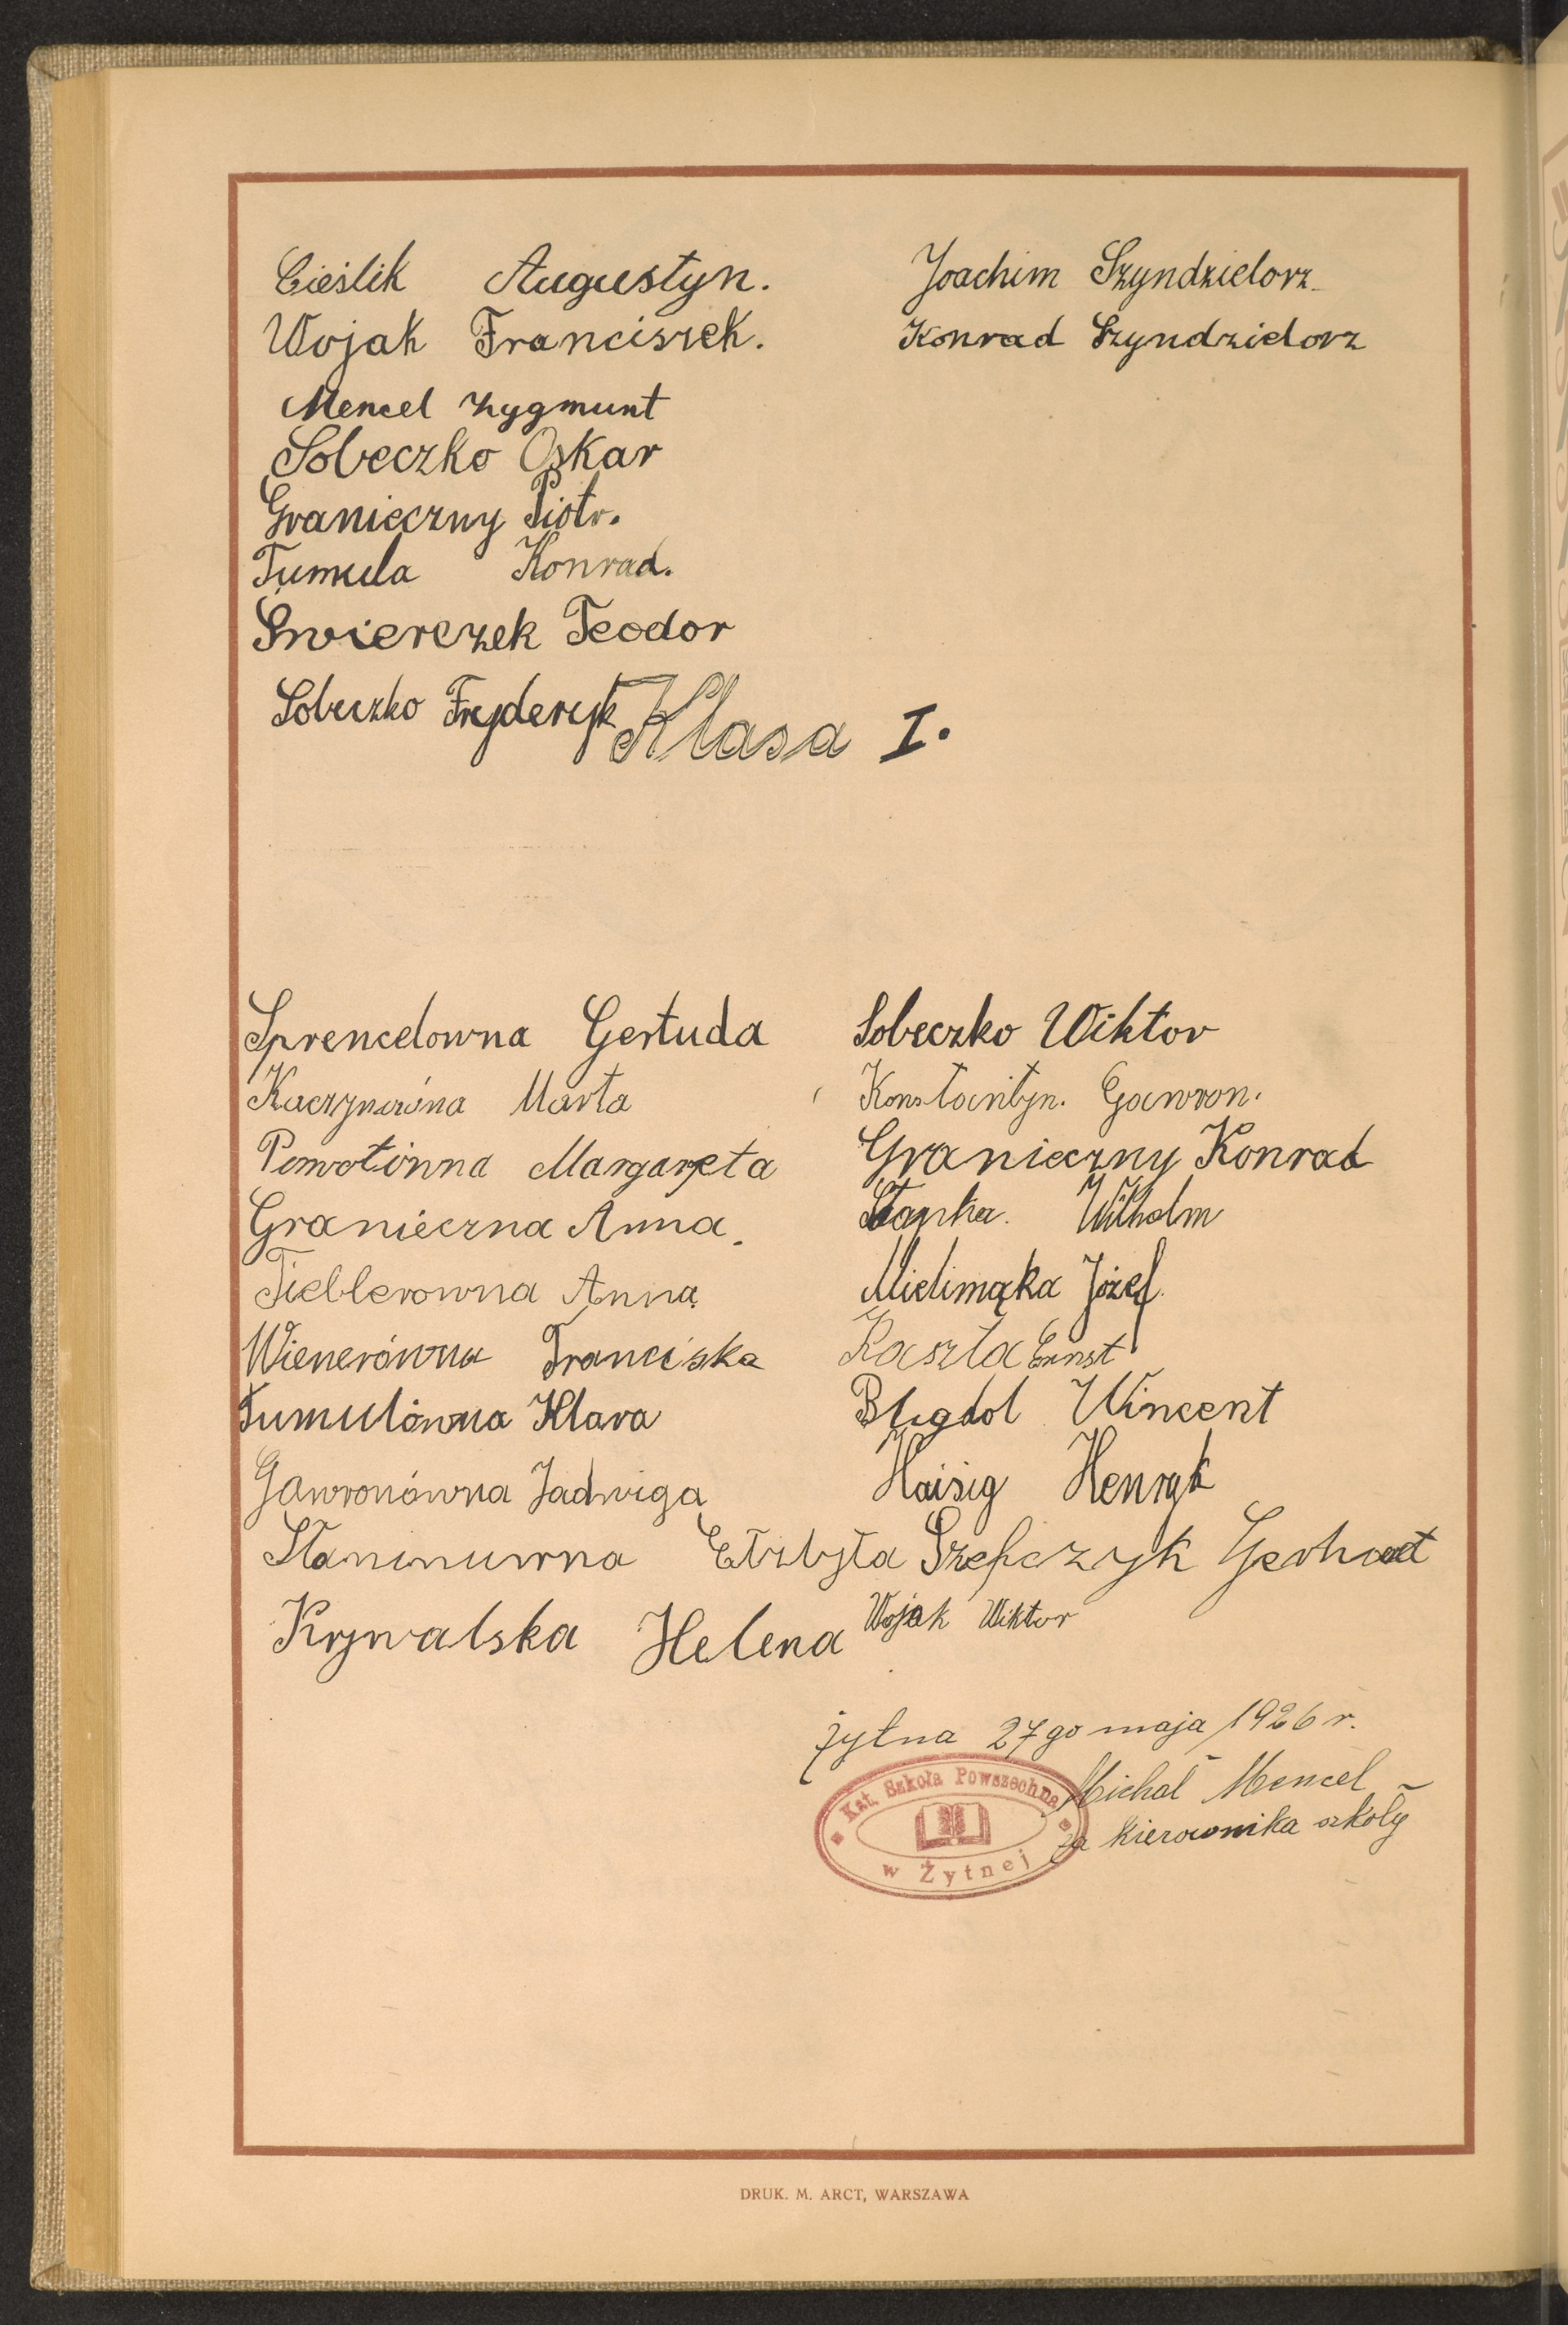 Cieślik Augustyn.
Wojak Franciszek.
Mencel Zygmunt
Sobeczko Oskar
Granieczny Piotr.
Tumula Konrad.
Swierczek Teodor
Sobeczko Fryderyk
Joachim Szyndzielorz
Konrad Szyndzielorz
Klasa I.
Sprencelowna Gertuda
Kaczynówna Marta
Margareta
Granieczna Anna.
Tieblerowna Anna
Wienerówna Franciska
Tumulówna Klara
Gawronówna Jadwiga
Krywalska Helena
Sobeczko Wiktor
Konstantyn. Gawron.
Granieczny Konrad
Wilhelm
Mielimąka Józef
Kaszta Ernst
Bligdol Wincent
Haisig Henryk
Szefczyk Gerhart
Wojak Wiktor
Żytna 27go maja 1926 r.
Michał Mencel
za kierownika szkoły
Kat. Szkoła Powszechna
w Żytnej
DRUK. M. ARCT, WARSZAWA